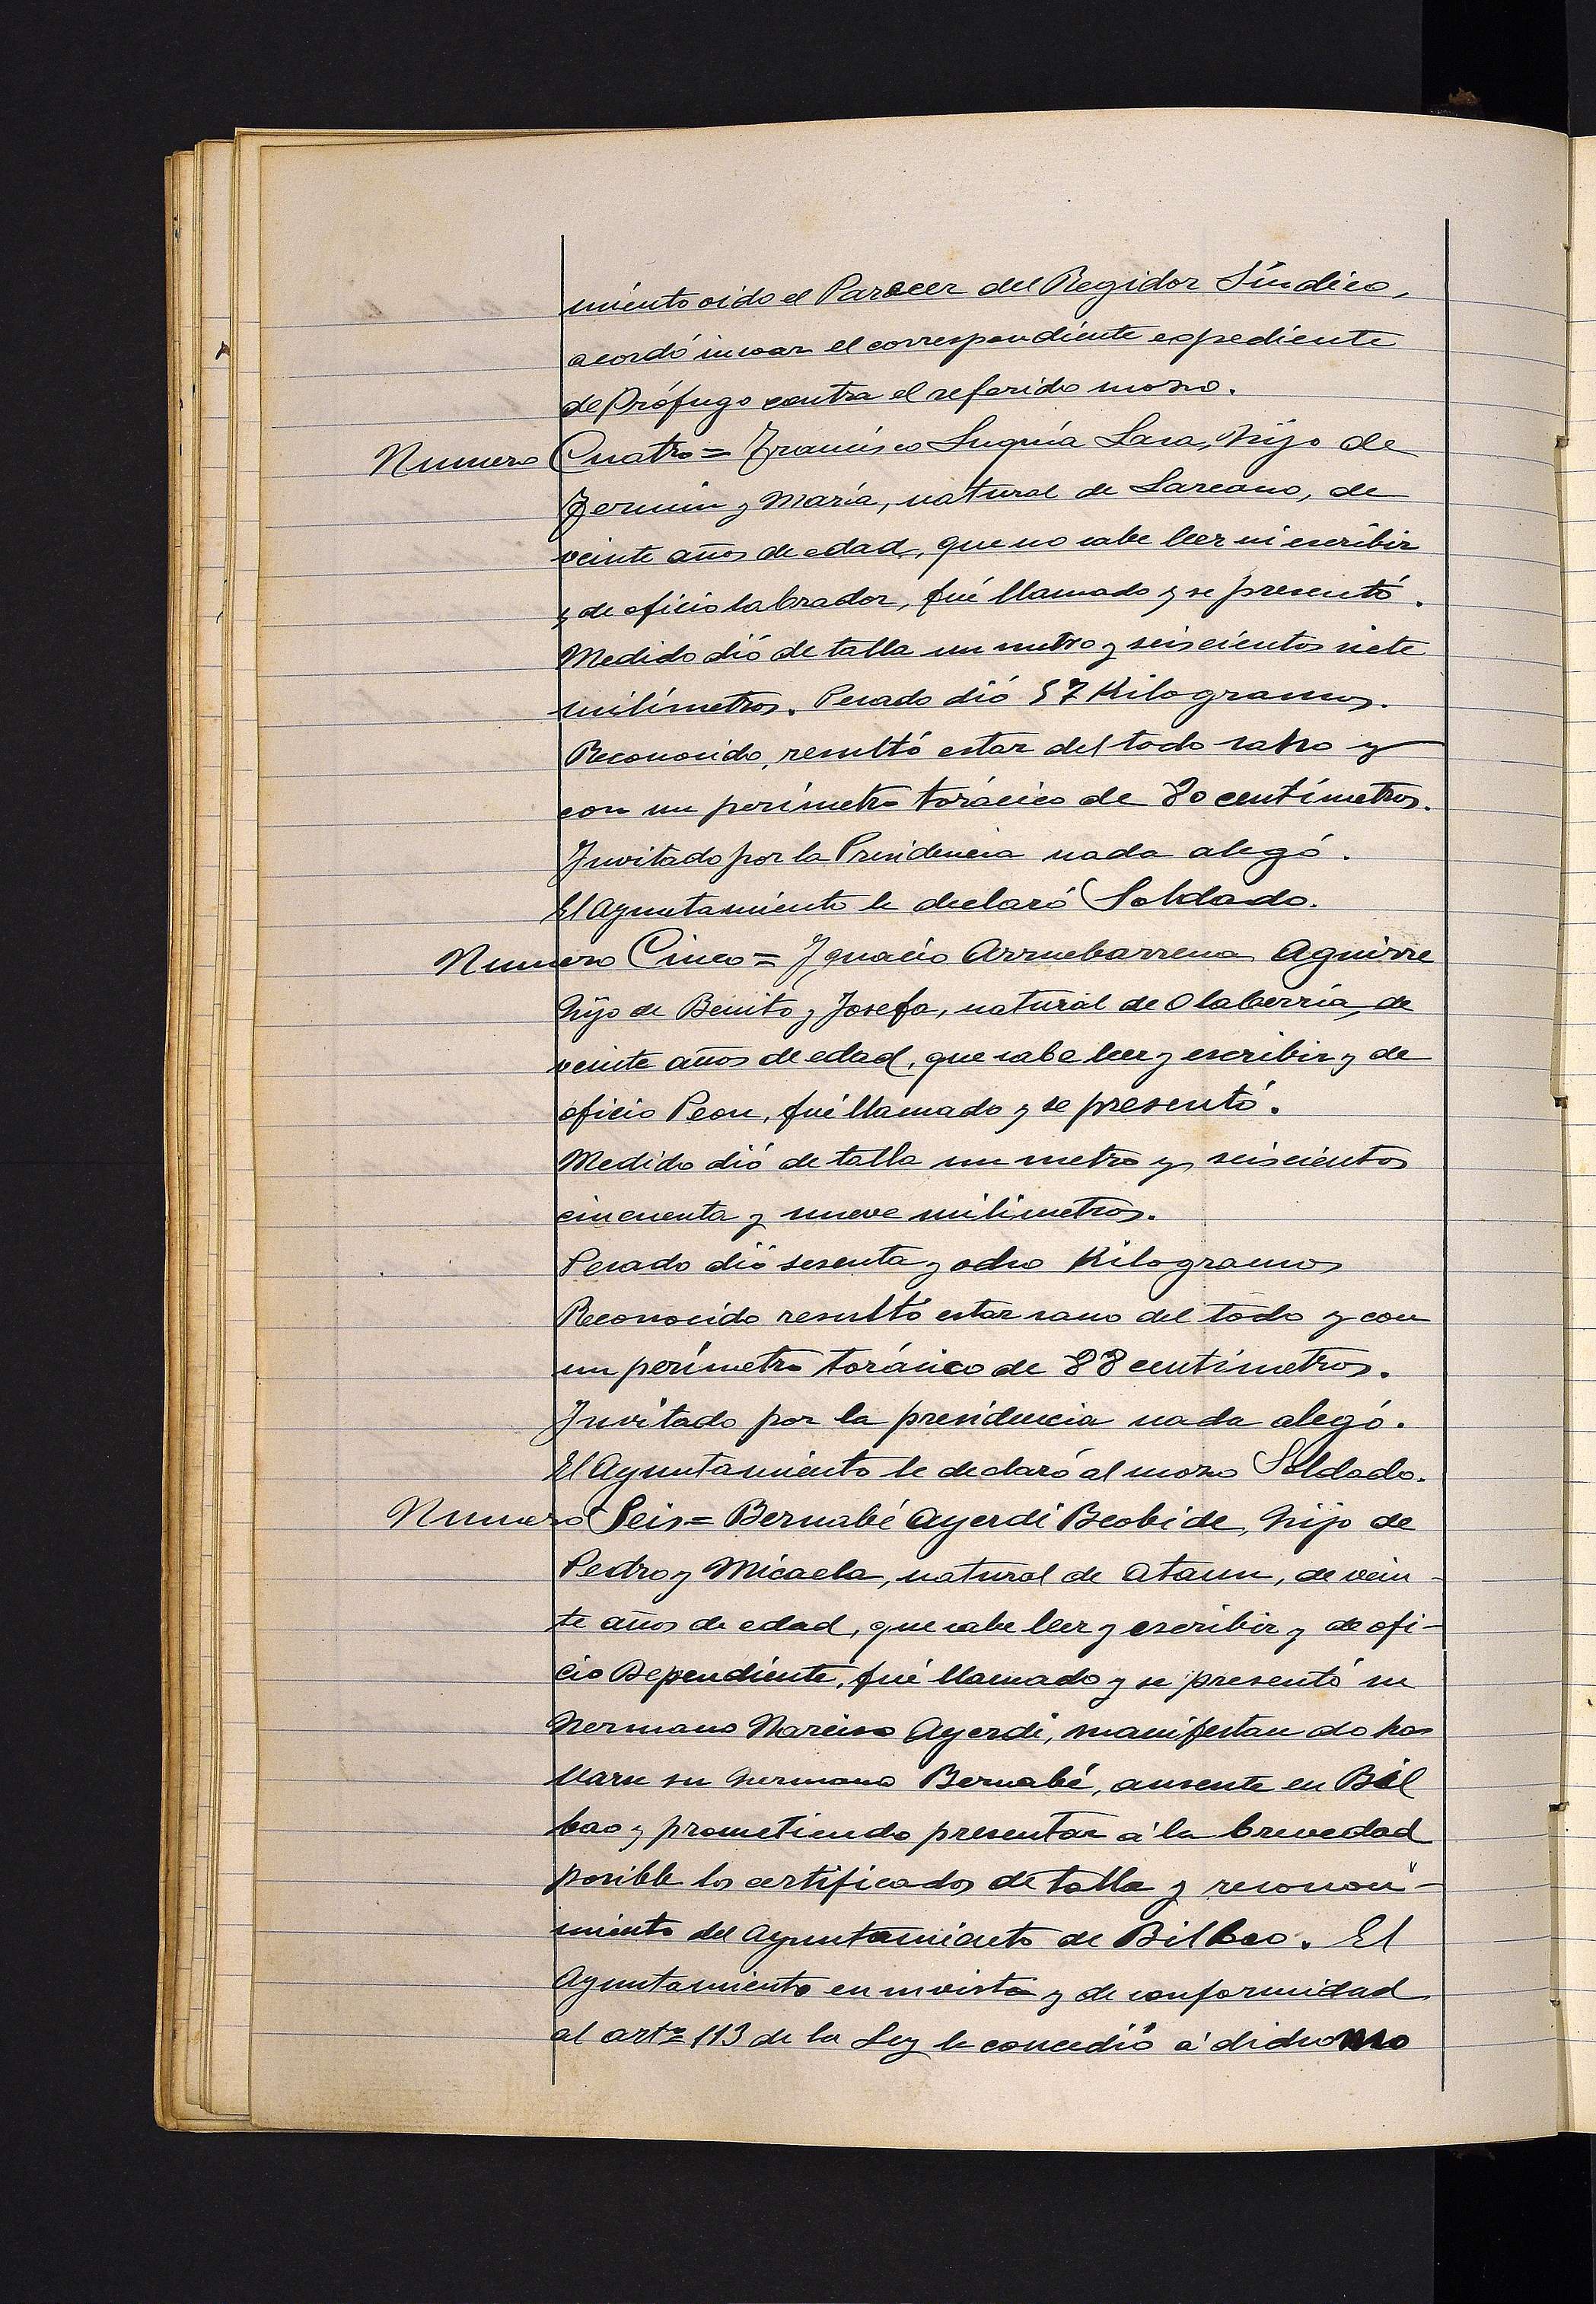 miento oido el Parecer del Regidor Síndico,
acordó incoar el correspondiente expediente
de Prófugo contra el referido mozo.
Numero Cuatro = Francisco Luquía Lasa, hijo de
Fermin y María, natural de Lazcano, de
veinte años de edad, que no sabe leer ni escribir
y de oficio labrador, fué llamado y se presentó.
Medido dió de talla un metro y seiscientos siete
milímetros. Pesado dió 57 Kilogramos.
Reconocido, resultó estar del todo sano y
con un perímetro torácico de 80 centímetros.
Invitado por la Presidencia nada alegó.
El Ayuntamiento le declaró Soldado.
Numero Cinco = Ignacio Arruebarrena Aguirre
hijo de Benito y Josefa, natural de Olaberría, de
veinte años de edad, que sabe leer y escribir y de
oficio Peon, fué llamado y se presentó.
Medido dió de talla un metro y seiscientos
cincuenta y nueve milimetros.
Pesado dió sesenta y ocho Kilogramos
Reconocido resultó estar sano del todo y con
un perímetro torácico de 88 centímetros.
Invitado por la presidencia nada alegó.
El Ayuntamiento le declaró al mozo Soldado.
Numero Seis = Bernabé Ayerdi Beobide, hijo de
Pedro y Micaela, natural de Ataun, de vein-
te años de edad, que sabe leer y escribir y de ofi-
cio Dependiente, fué llamado y se presentó su
hermano Narciso Ayerdi, manifestando ha
llarse su hermano Bernabé, ausente en Bil
bao y prometiendo presentar á la brevedad
posible los certificados de talla y reconoci-
miento del Ayuntamiento de Bilbao. El
Ayuntamiento en su vista y de conformidad
al artº 113 de la Ley le concedió á dicho mo